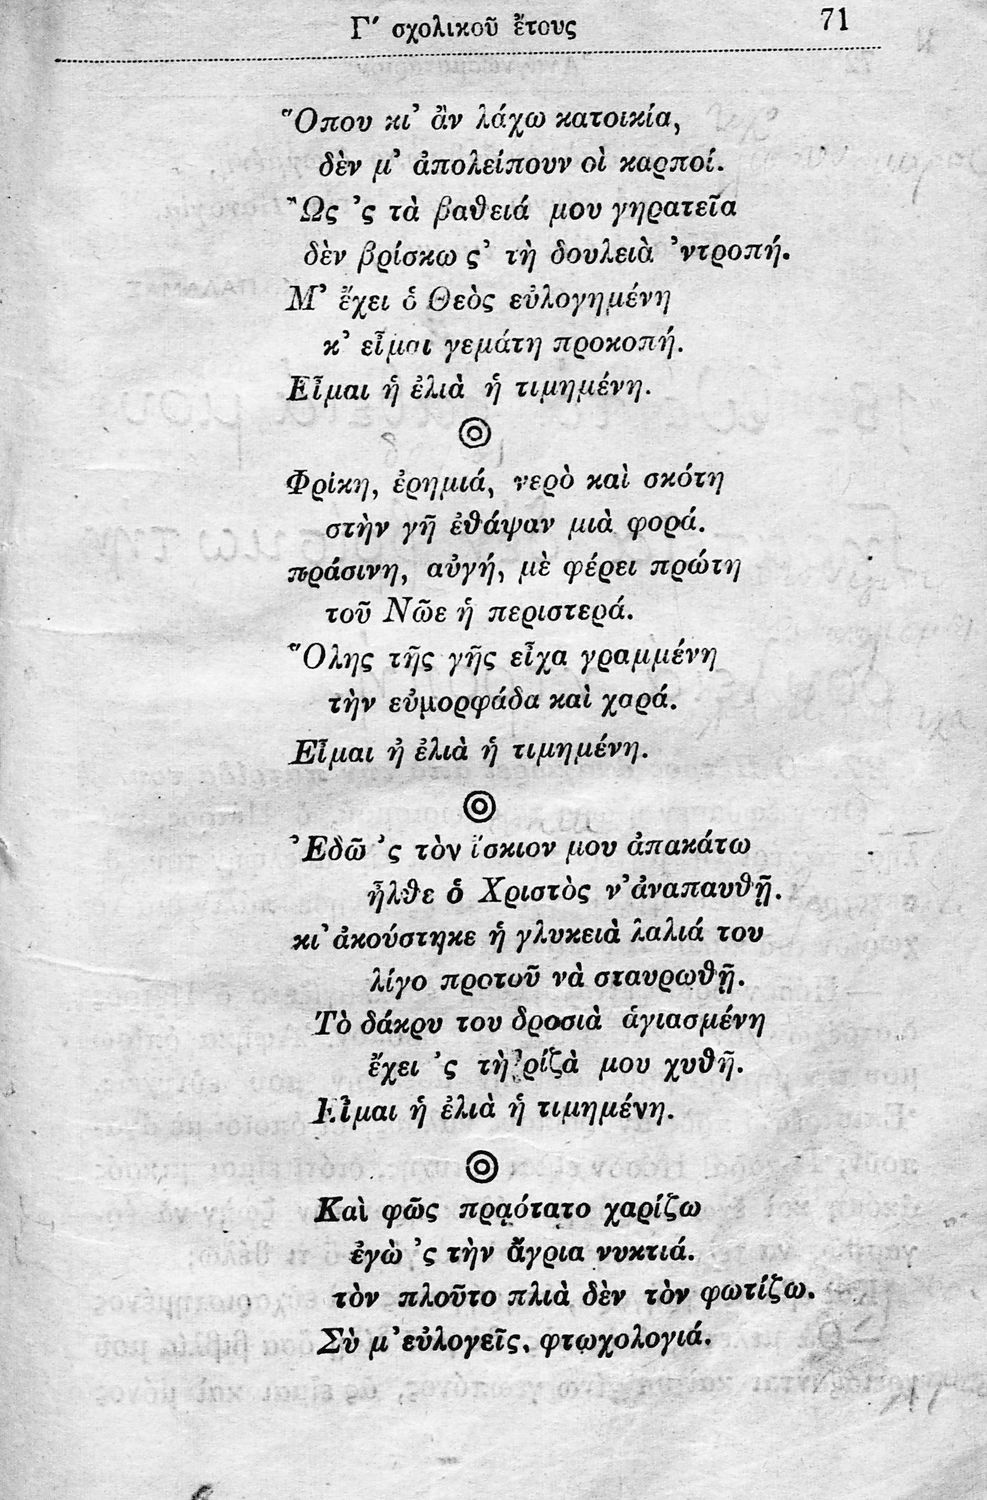 Γ′ σχολικοῦ ἔτους 71
Ὅπου κι' ἂν λάχω κατοικία,
δὲν μ' ἀπολείπουν οἱ καρποί.
Ὣς 'ς τὰ βαθειά μου γηρατεῖα
δὲν βρίσκω ς' τὴ δουλειὰ 'ντροπή.
Μ' ἔχει ὁ Θεὸς εὐλογημένη
κ' εἶμαι γεμάτη προκοπή.
Εἶμαι ἡ ἐλιὰ ἡ τιμημένη.
Φρίκη, ἐρημιά, νερὸ καὶ σκότη
στὴν γῆ ἐθάψαν μιὰ φορά.
πράσινη, αὐγή, μὲ φέρει πρώτη
τοῦ Νῶε ἡ περιστερά.
Ὅλης τῆς γῆς εἶχα γραμμένη
τὴν εὐμορφάδα καὶ χαρά.
Εἶμαι ἡ ἐλιὰ ἡ τιμημένη.
Ἐδῶ 'ς τὸν ἴσκιον μου ἀπακάτω
ἦλθε ὁ Χριστὸς ν' ἀναπαυθῇ.
κι' ἀκούστηκε ἡ γλυκειὰ λαλιά του
λίγο προτοῦ νὰ σταυρωθῇ.
Τὸ δάκρυ του δροσιὰ ἁγιασμένη
ἔχει 'ς τὴ ῥίζὰ μου χυθῆ.
Εἶμαι ἡ ἐλιὰ ἡ τιμημένη.
Καὶ φῶς πρᾳότατο χαρίζω
ἐγὼ 'ς τὴν ἄγρια νυκτιά.
τὸν πλοῦτο πλιὰ δὲν τὸν φωτίζω.
Σὺ μ' εὐλογεῖς, φτωχολογιά.